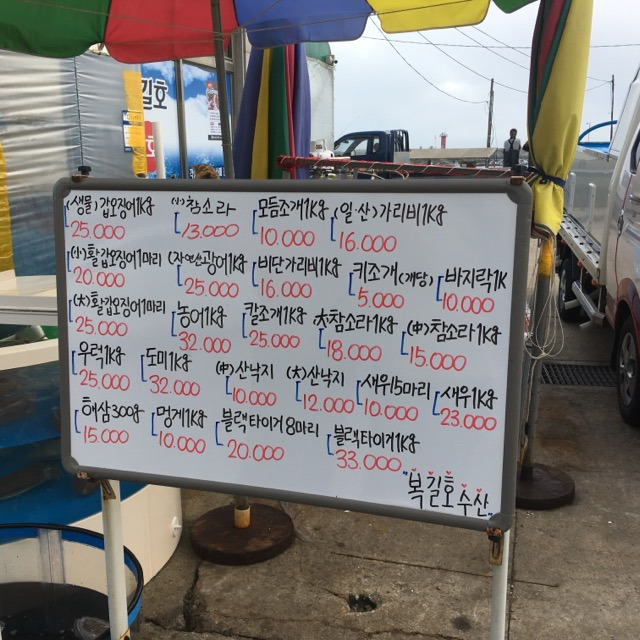 길호
(생물)갑오징어1kg (小)참소라 모듬조개1kg (일.산)가리비1kg
25.000 13.000 10.000 16.000
(小)활갑오징어1마리 (자연산)광어1kg 비단가리비1kg 키조개(개당) 바지락1K
20.000 25.000 16.000 5.000 10.000
(大)활갑오징어1마리 농어1kg 칼조개1kg 大참소라1kg (中)참소라1kg
25.000 32.000 25.000 18.000 15.000
우럭1kg 도미1kg (中)산낙지 (大)산낙지 새위5마리 새우1kg
25.000 32.000 10.000 12.000 10.000 23.000
해삼300g 멍게1kg 블랙타이거8마리 블랙타이거1kg
15.000 10.000 20.000 33.000
"복길호수산"